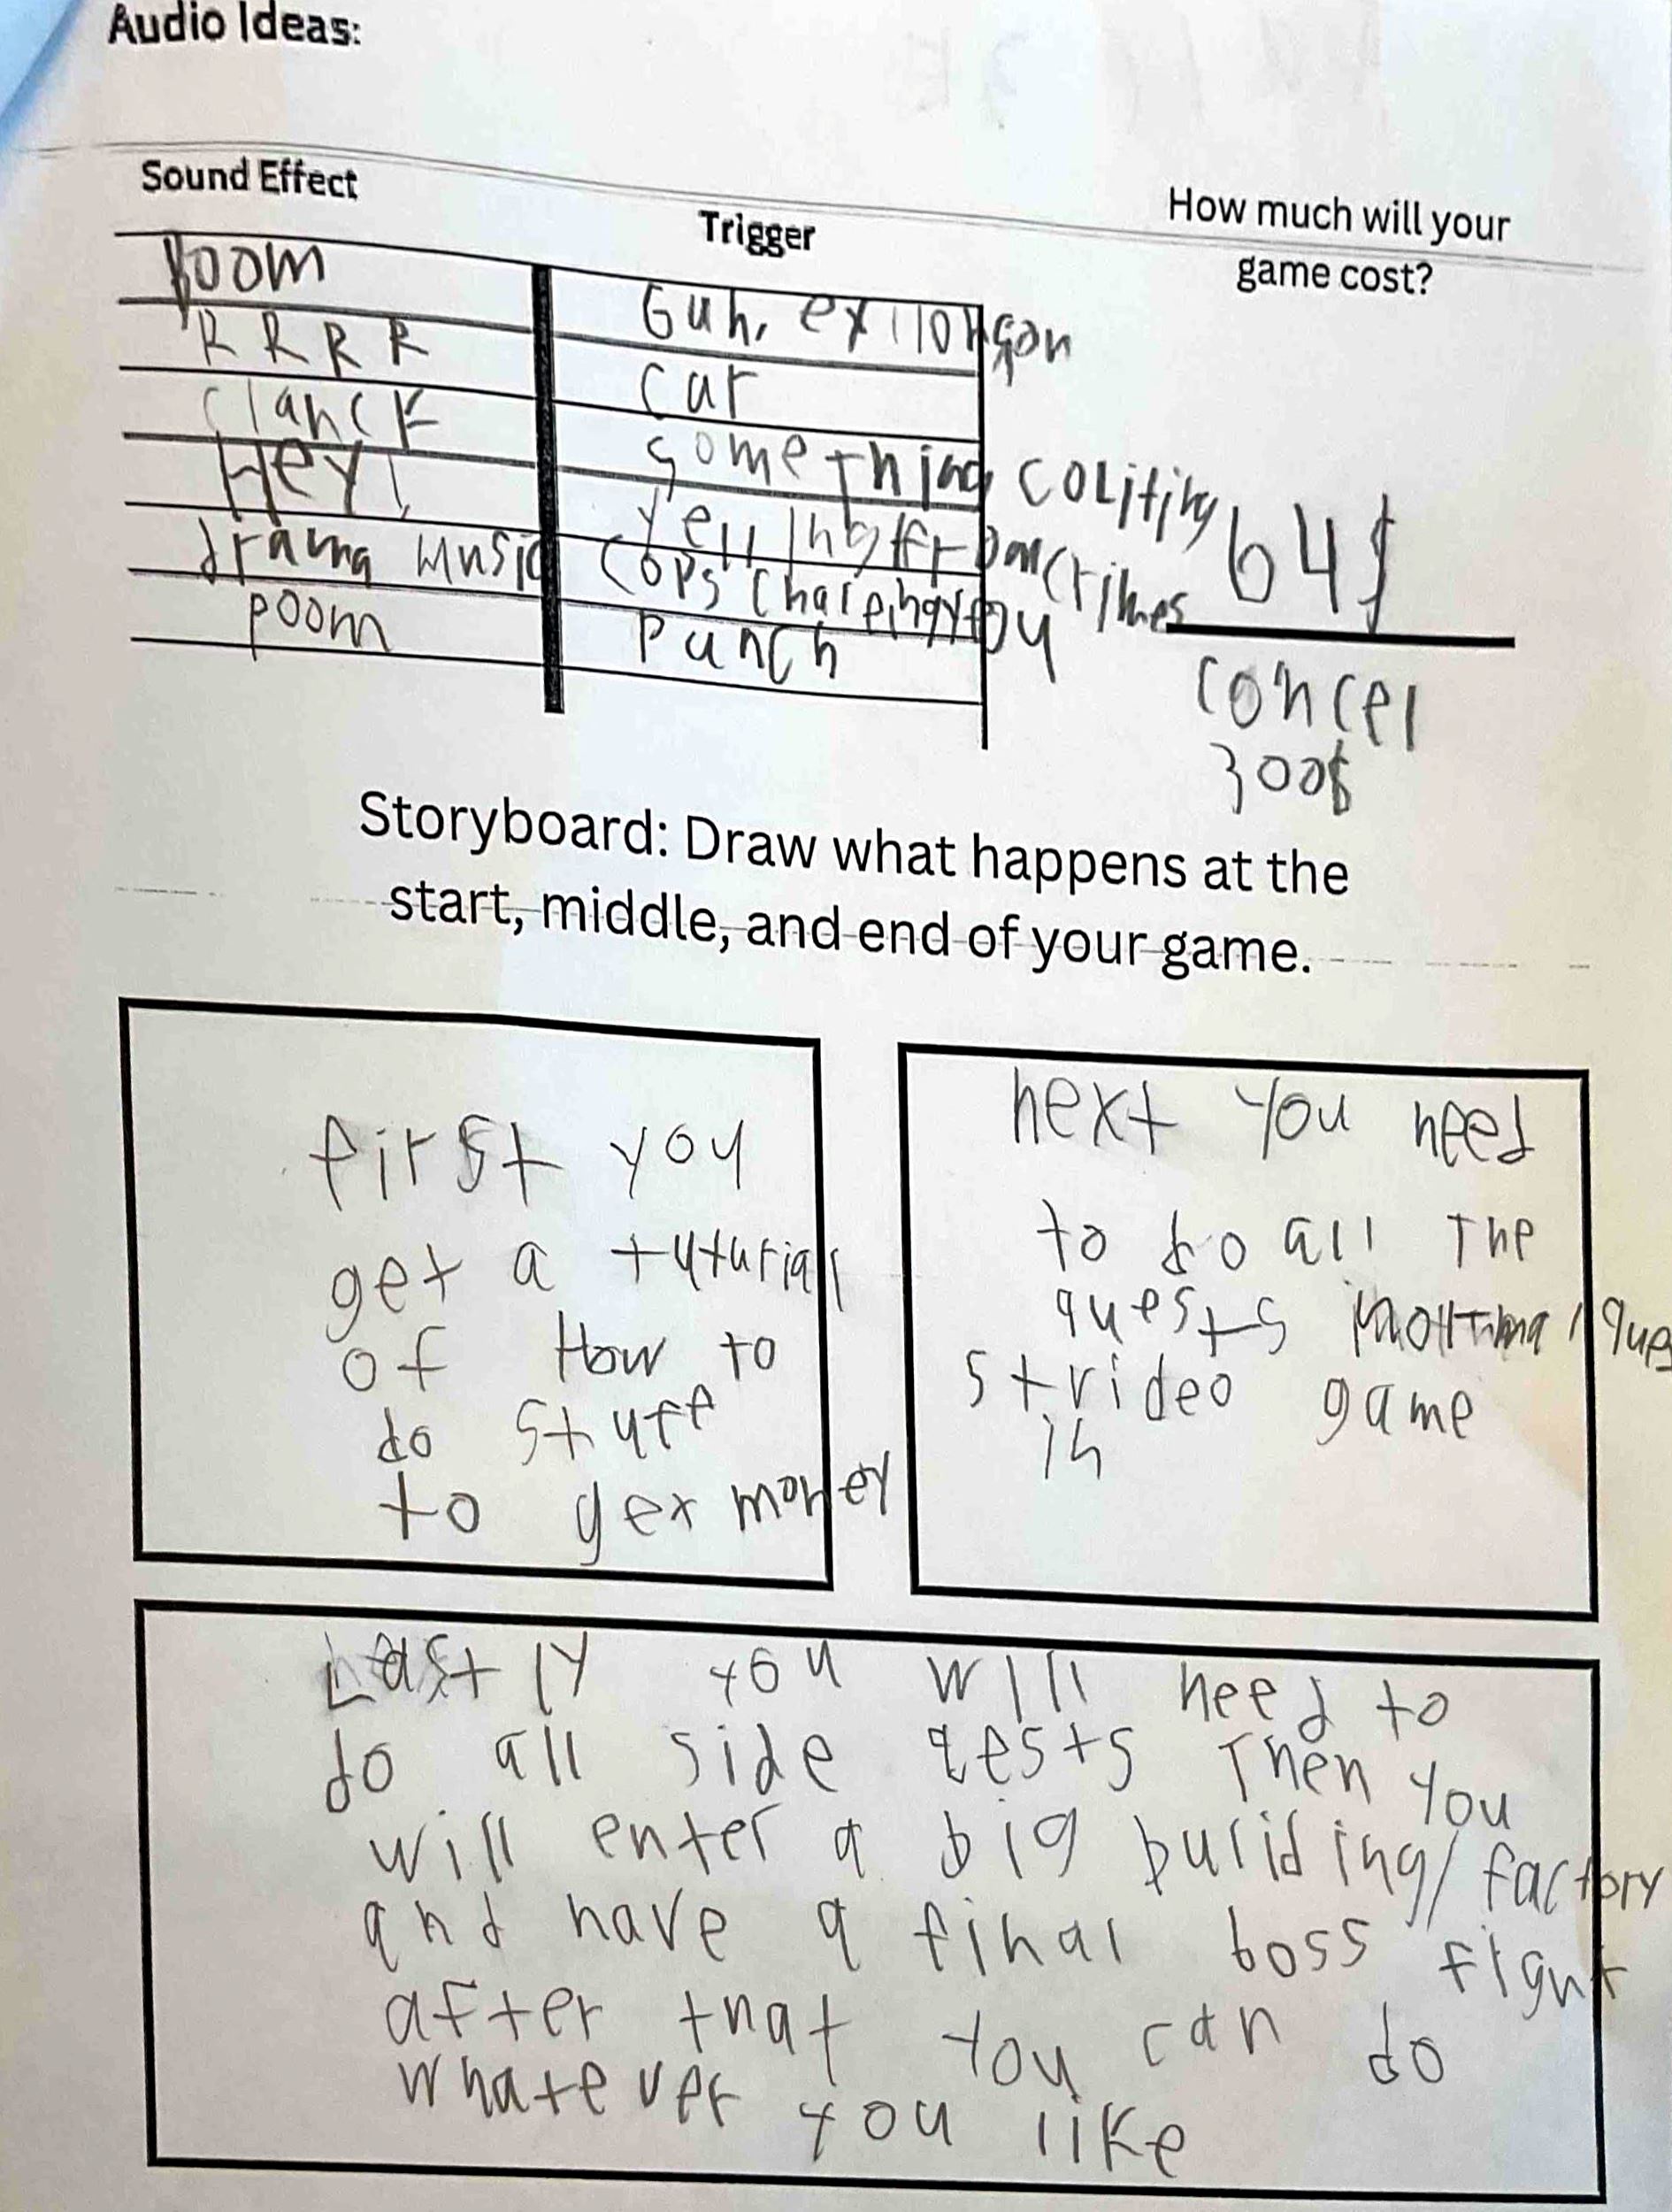 Audio Ideas:
Sound Effect
Trigger
How much will your
game cost?
Boom
Gun, exllongon
R R R R
car
clanck
some thing colitihg
Hey!
Yelling/from crimes
drama music
cops chareingyou
poom
punch
64$
concel
300$
Storyboard: Draw what happens at the
start, middle, and end of your game.
first you
get a tuturial
of How to
do stuff
to get money
next you need
to do all the
quests
st video game
in
Lastly you will need to
do all side qests Then you
will enter a big buriding/factory
and have a final boss fight
after that you can do
whatever you like